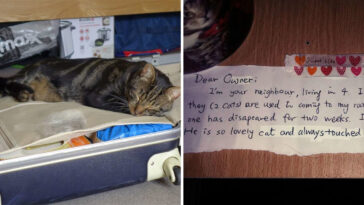 max
Dear Owner:
I'm your neighbour, living in 4. I
they (2 cats) are used in coming to my
one has disapeared for two weeks. I
He is so lovely cat and always touched